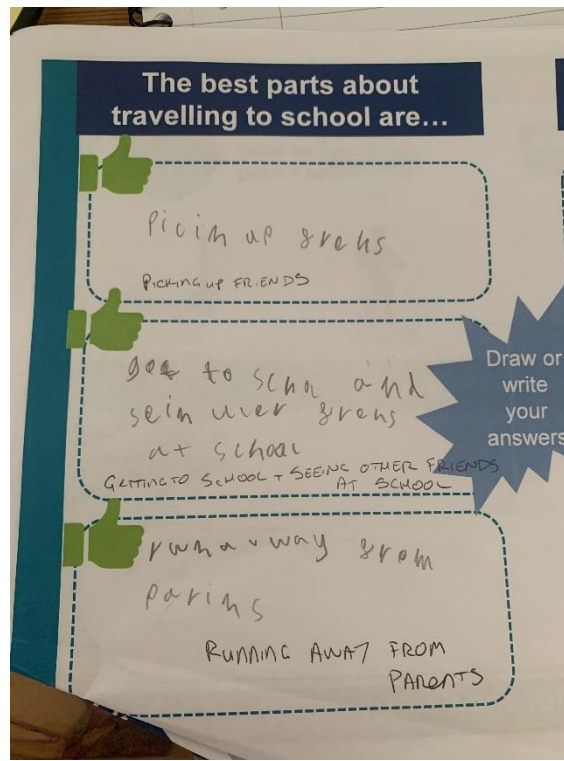 The best parts about
travelling to school are...
Picin up frens
PICKING UP FRIENDS
get to scho and
sein uver frens
at school
GETTING TO SCHOOL + SEEING OTHER FRIENDS
AT SCHOOL
Draw or
write
your
answers
runa way from
parins
RUNNING AWAY FROM
PARENTS